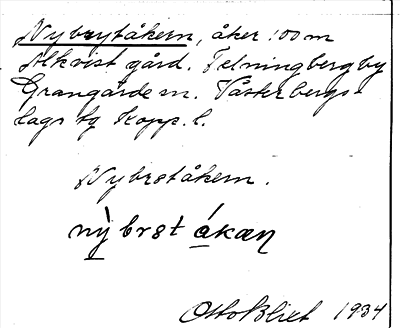 Nybrytåkern, åker 100 m
Alkvist gård. Telningberg by
Grangärde sn. Västerbergs-
lags tg Kopp. l.
Nybrståkern.
nỳ brst ákæn
Otto Blixt 1934